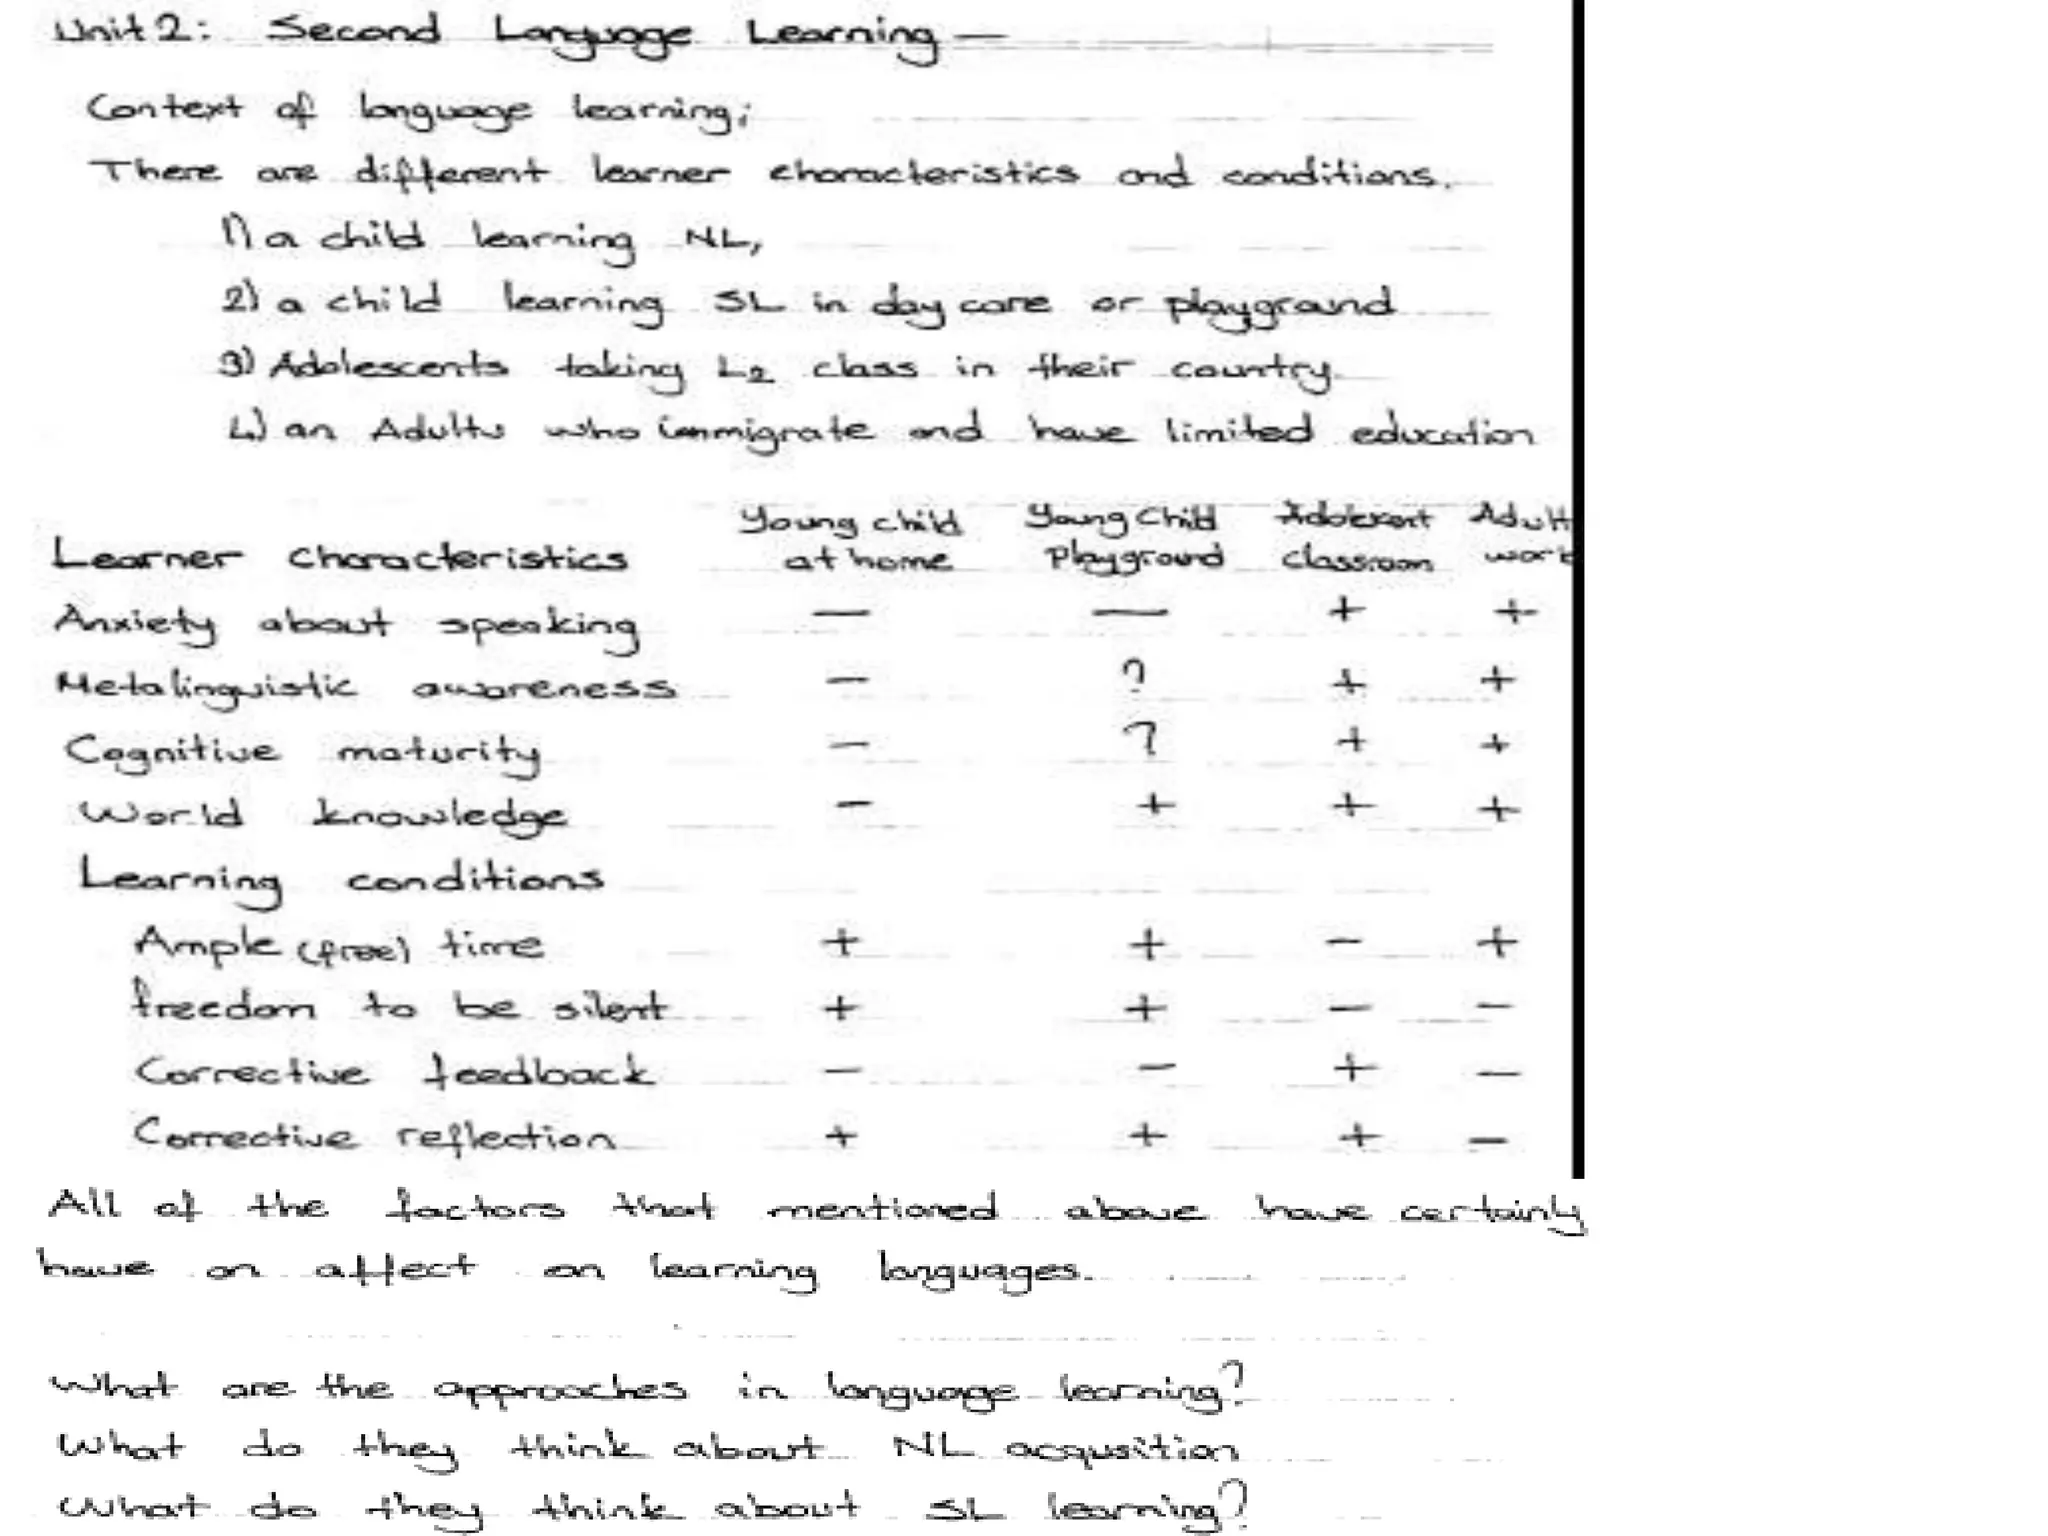 Unit 2: Second Language Learning —
Context of language learning;
There are different learner characteristics and conditions.
1) a child learning NL,
2) a child learning SL in day care or playground
3) Adolescents taking L2 class in their country.
4) an Adults who immigrate and have limited education
Young child Young Child Adolescent Adult
Learner Characteristics at home Playground classroom work
Anxiety about speaking — — + +
Metalinguistic awareness - ? + +
Cognitive maturity - ? + +
World knowledge - + + +
Learning conditions
Ample (free) time + + - +
freedom to be silent + + - -
Corrective feedback - - + -
Corrective reflection + + + -
All of the factors that mentioned above have certainly
have an affect on learning languages.
What are the approaches in language learning?
What do they think about NL acqusition
What do they think about SL learning?